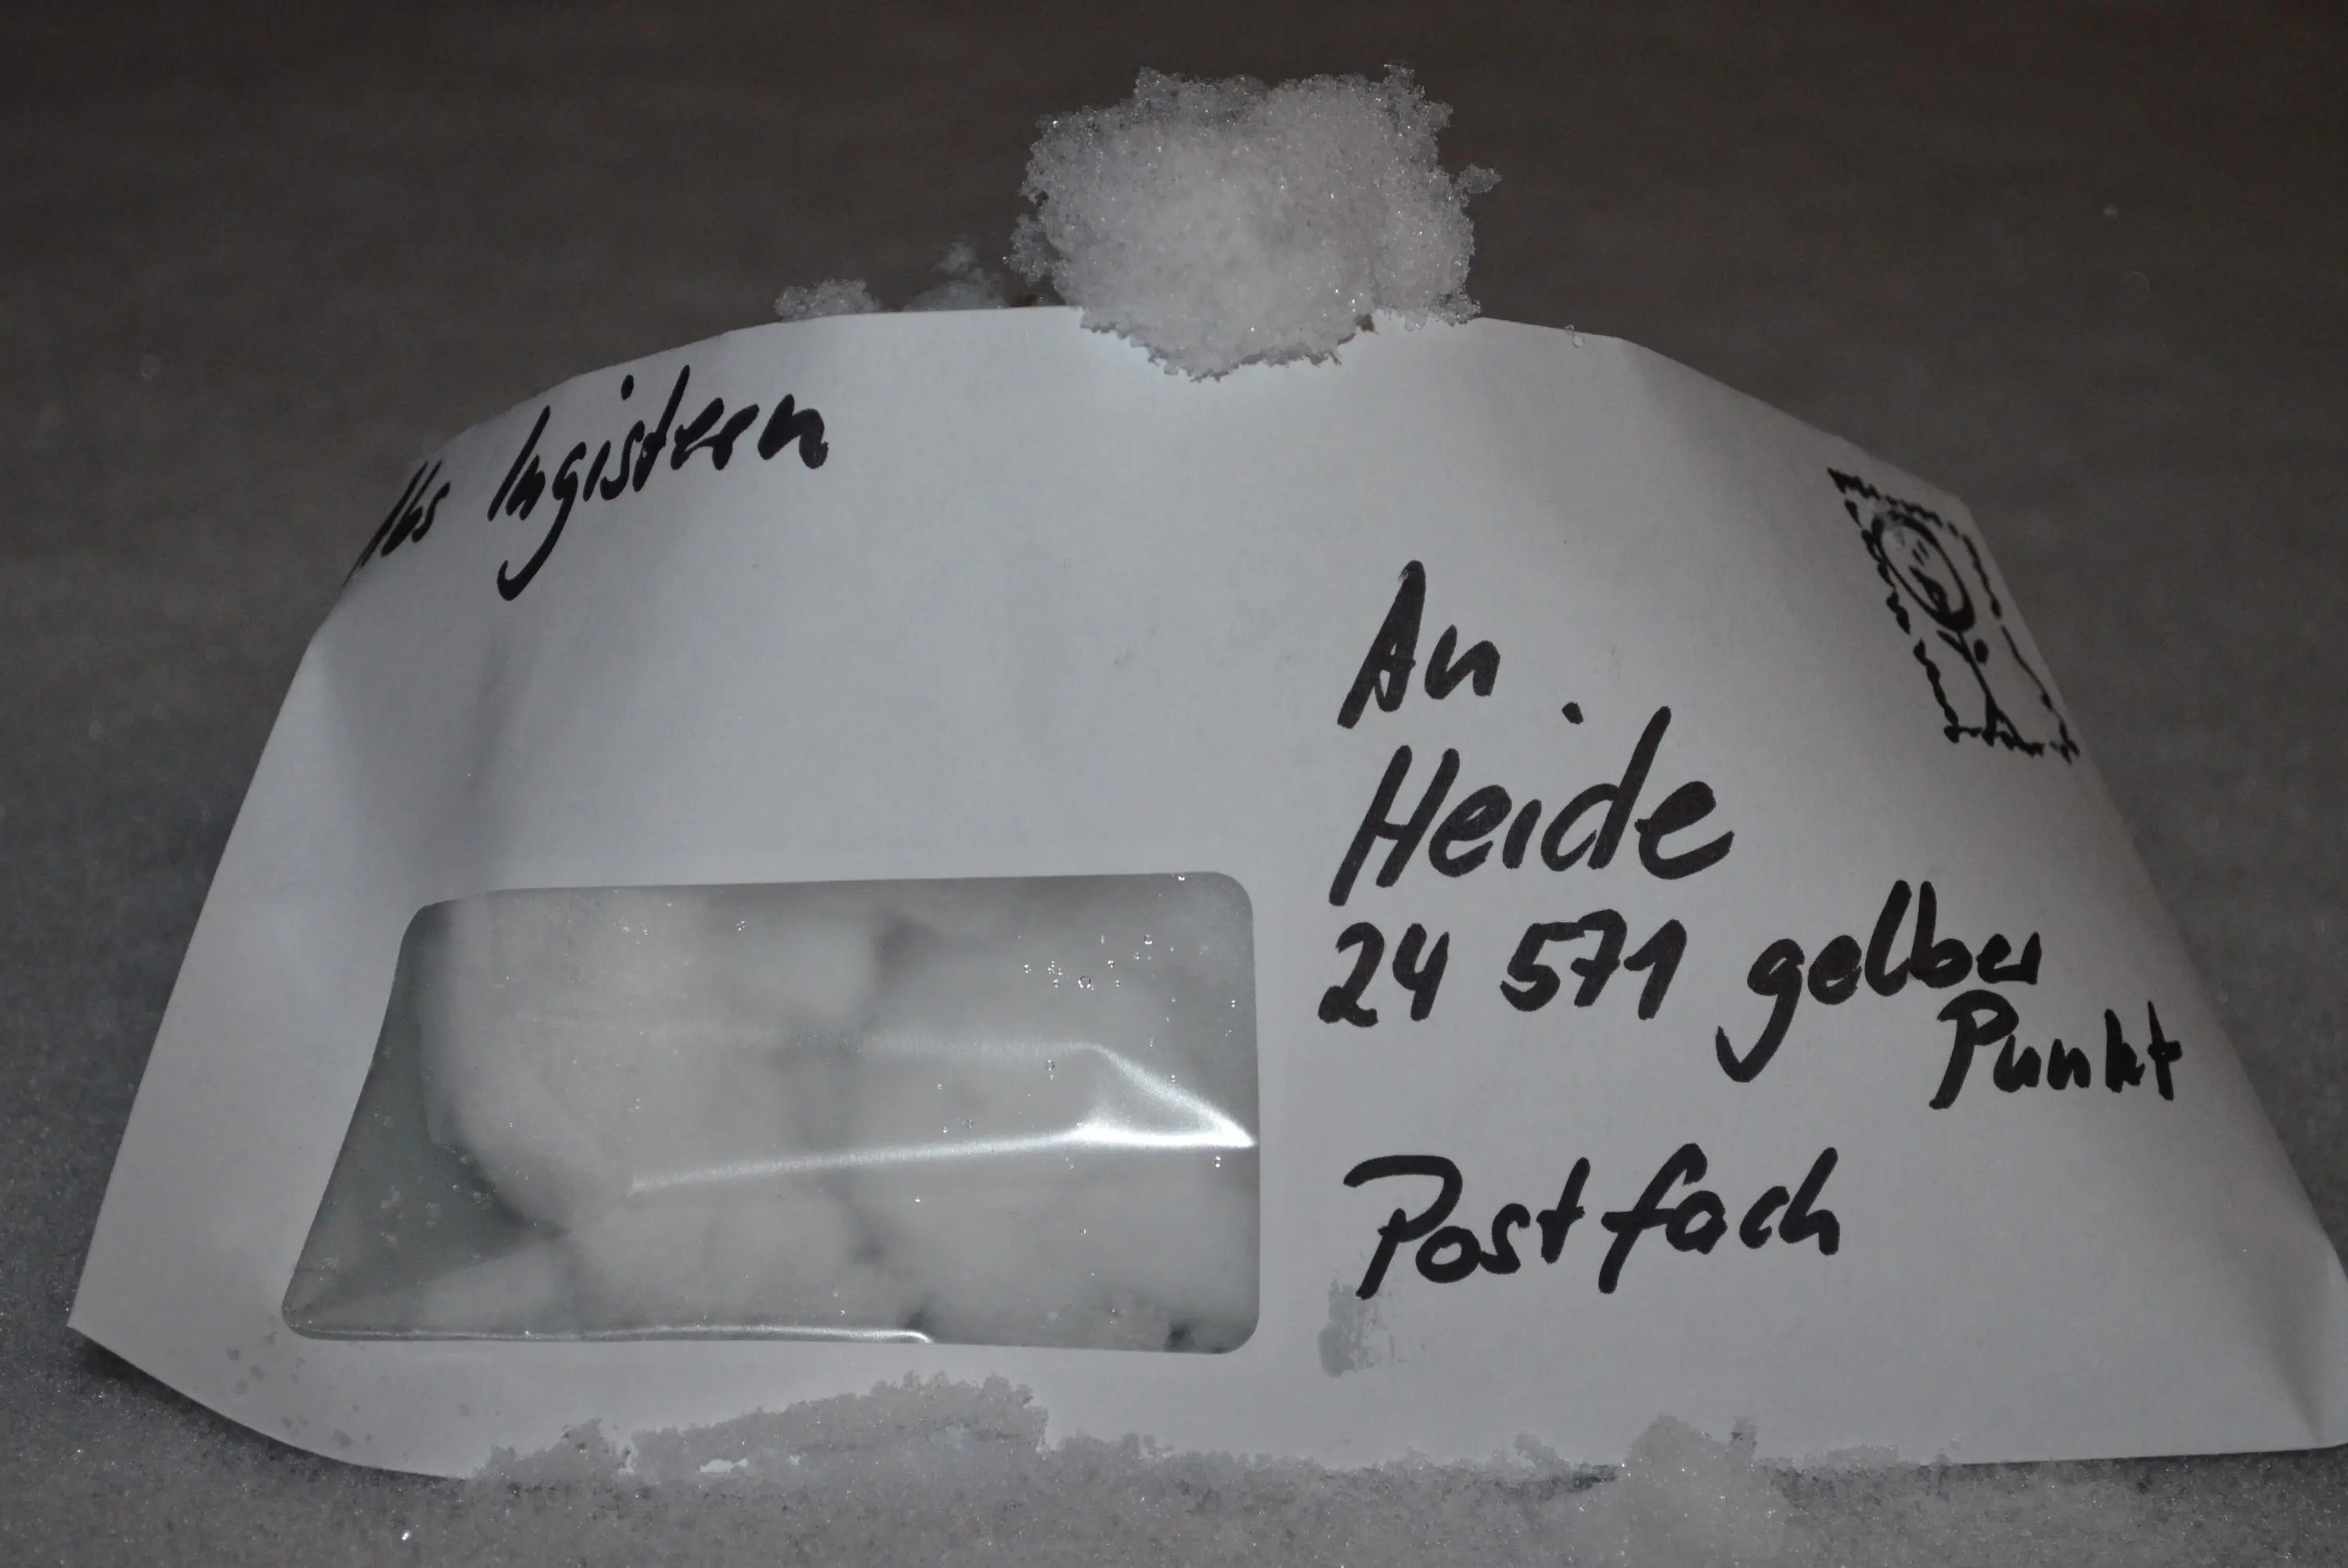 Abs Ingistern
An
Heide
24 571 gelber
Punkt
Postfach